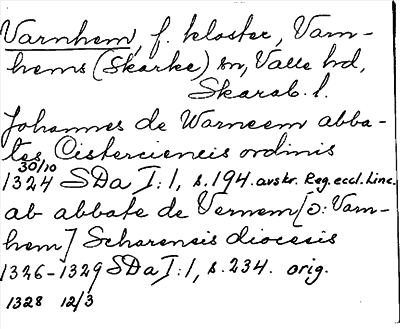 Varnhem, f. kloster, Varn-
hems (Skarke) sn, Valle hd,
Skarab. l.
Johannes de Warneem abba-
tes Cisterciencis ordinis
30/10
1324 SDa I:1, s.194. avskr. Reg. eccl. Linc.
ab abbate de Vernem [ɔ: Varn-
hem] Scharensis diocesis
1326-1329 SDa I:1, s.234. orig.
1328 12/3